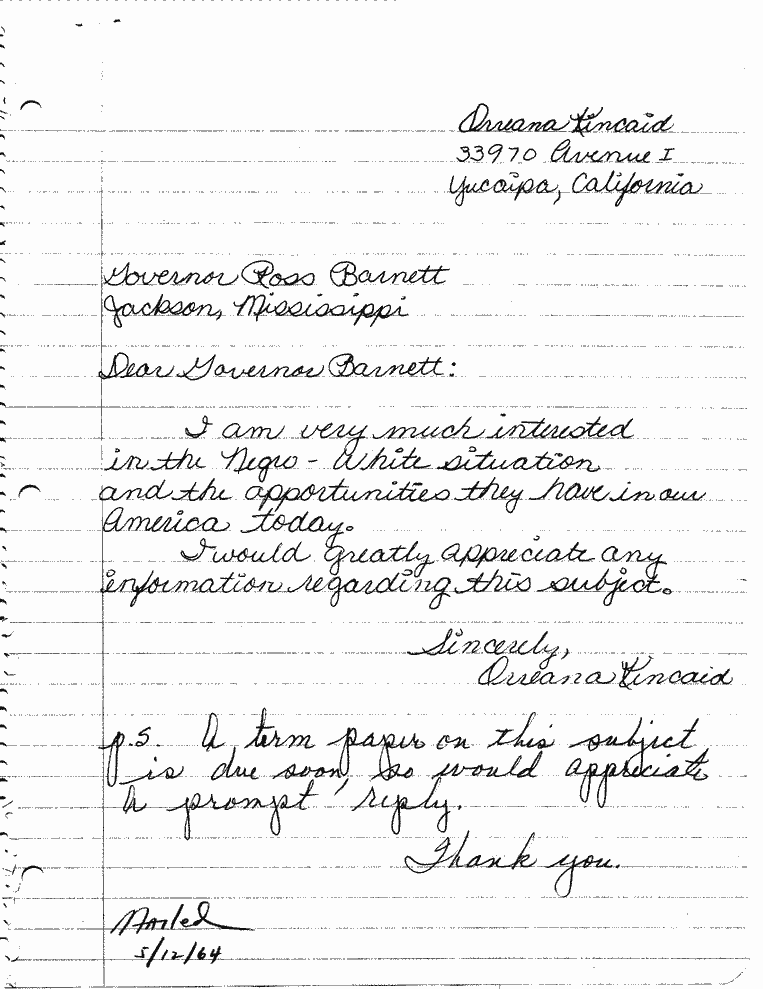 Orreana Kincaid
33970 Avenue I
Yucaipa, California
Governor Ross Barnett
Jackson, Mississippi
Dear Governor Barnett:
I am very much interested
in the Negro - White situation
and the opportunities they have in our
America today.
I would greatly appreciate any
information regarding this subject.
Sincerely,
Orreana Kincaid
p.s. A term paper on this subject
is due soon, so would appreciate
a prompt reply.
Thank you.
Mailed
5/12/64